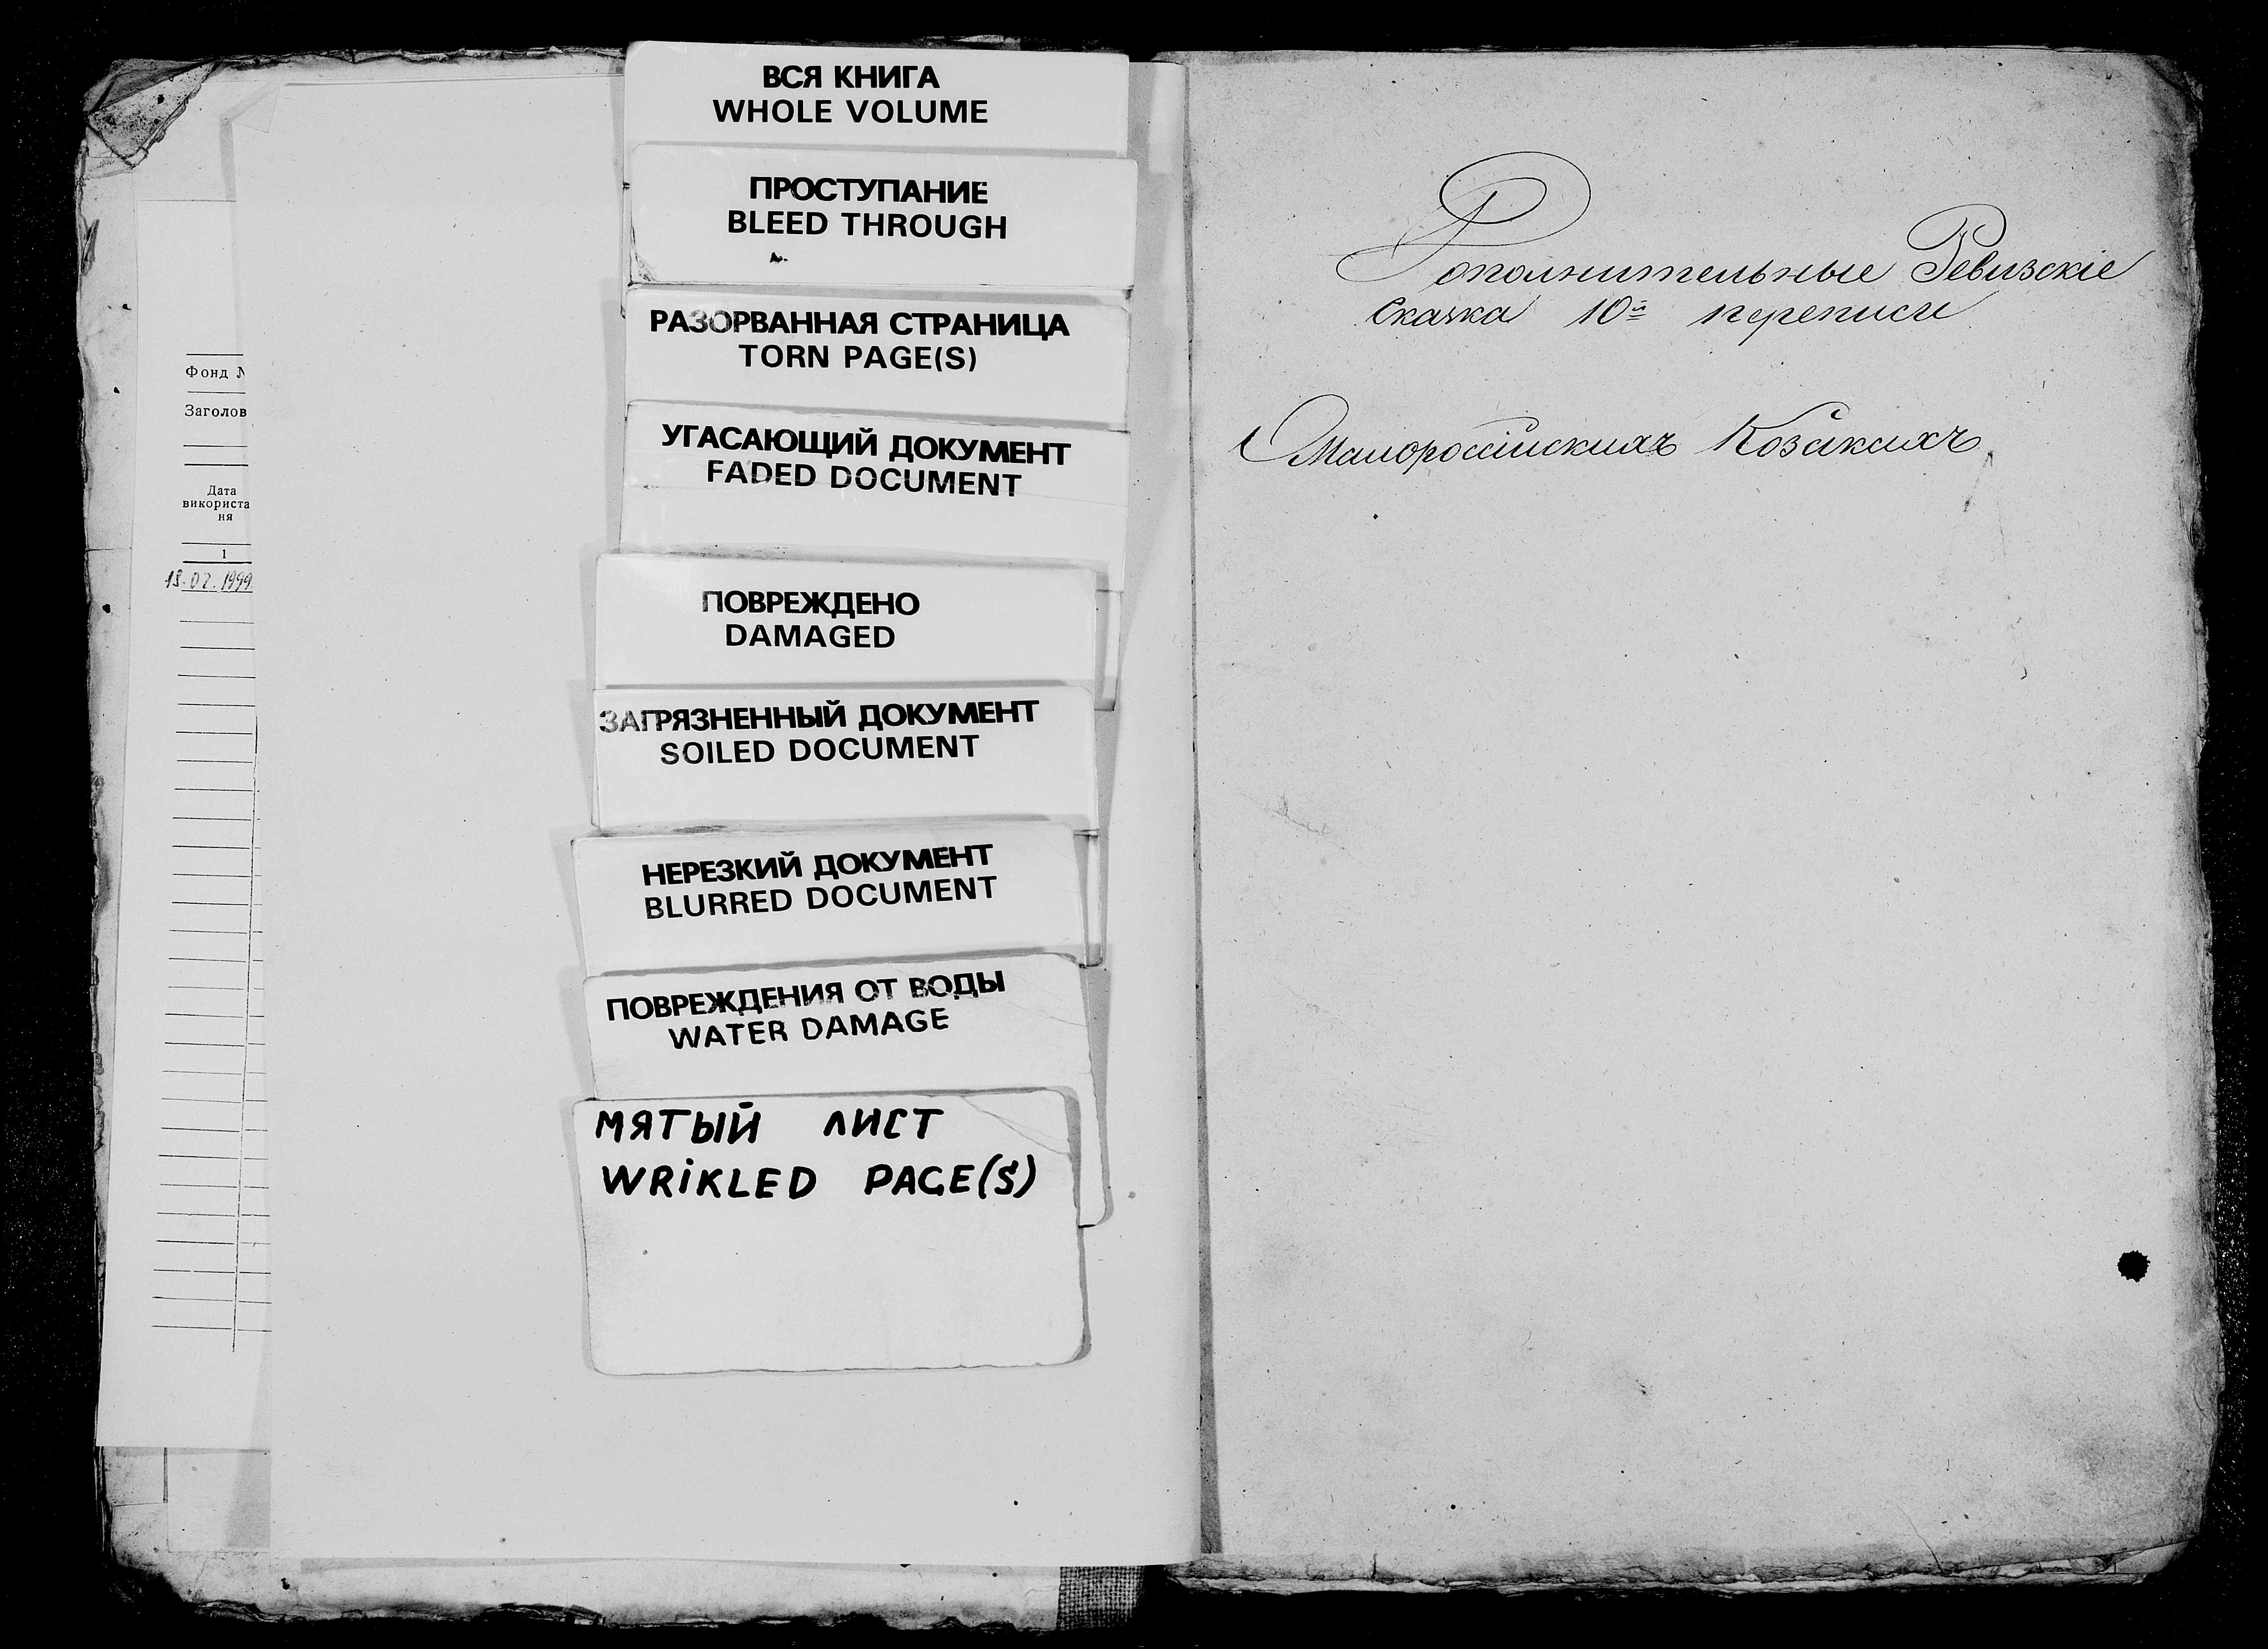 Фонд №
Заголов
Дата
використа
ня
1
18.02.1999
ВСЯ КНИГА
WHOLE VOLUME
ПРОСТУПАНИЕ
BLEED THROUGH
РАЗОРВАННАЯ СТРАНИЦА
TORN PAGE(S)
УГАСАЮЩИЙ ДОКУМЕНТ
FADED DOCUMENT
ПОВРЕЖДЕНО
DAMAGED
ЗАГРЯЗНЕННЫЙ ДОКУМЕНТ
SOILED DOCUMENT
НЕРЕЗКИЙ ДОКУМЕНТ
BLURRED DOCUMENT
ПОВРЕЖДЕНИЯ ОТ ВОДЫ
WATER DAMAGE
МЯТЫЙ ЛИСТ
WRIKLED PAGE(S)
Дополнительные Ревизскіе
Сказка 10й переписи
Малороссійскихъ Козакахъ